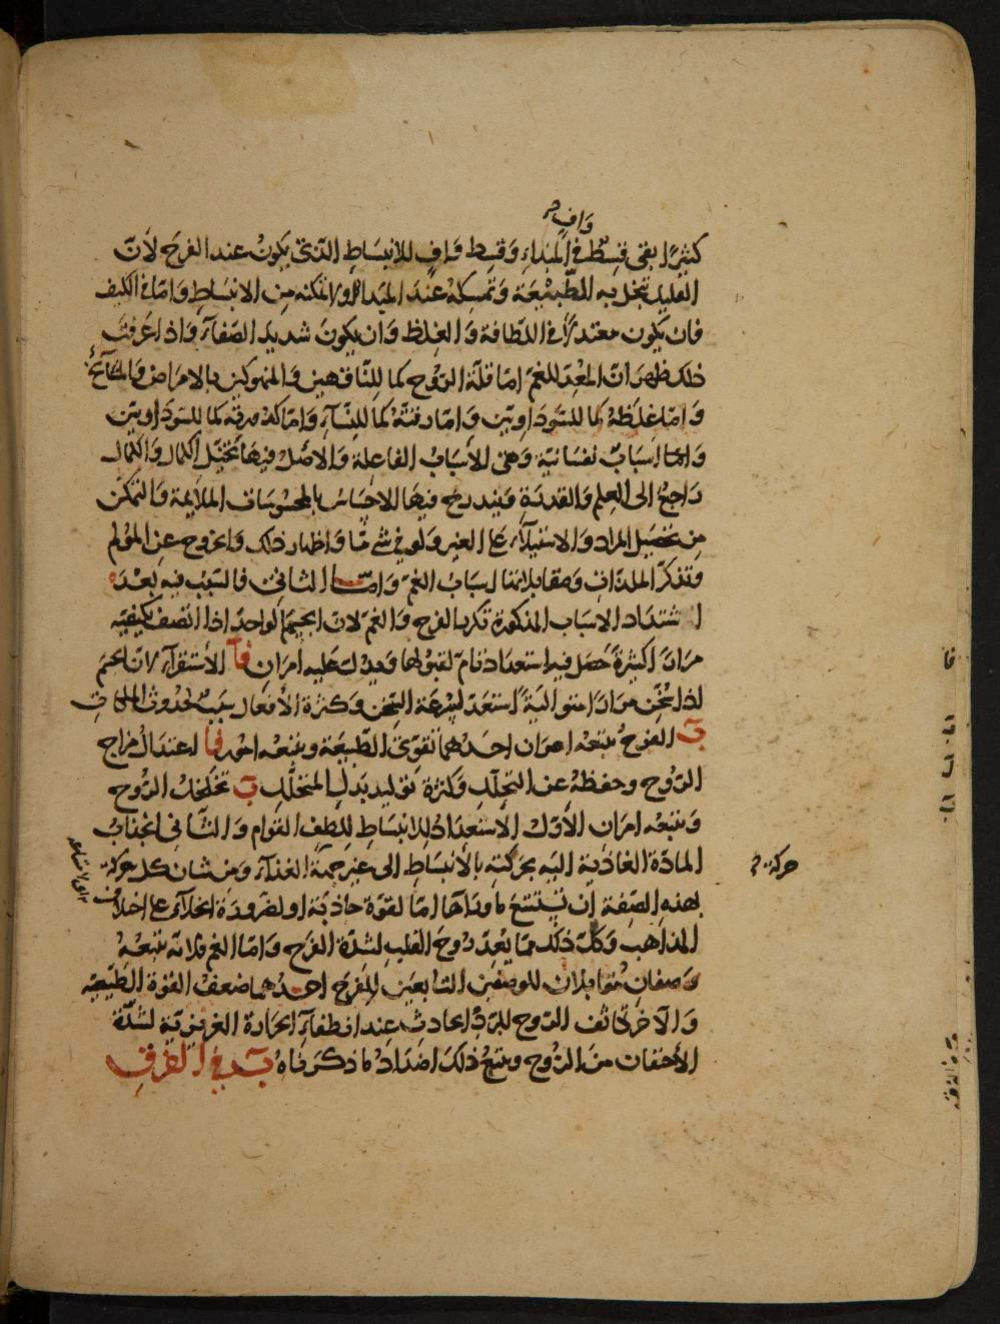 واف صح
كثيرا بقى قسط في المبداء وقسط واف للانبساط الذى يكون عند الفرح لان
القليل تبخل به الطبيعة وتمسكه عند المبدا ولا تمكنه من الانبساط واما في الكيف
فان يكون معتدلا في اللطافة والغلظ وان يكون شديد الصفآء واذا عرفت
ذلك ظهر ان المعد للغم اما قلة الروح كما للناقهين والمنهوكين بالامراض والمشآئخ
واما غلظه كما للسوداويين واما رقته كما للنسآء واما كدورته كما للسوداويين
واما اسباب نفسانية وهى الأسباب الفاعلة والاصل فيها تخيل الكمال والكمال
راجع الى العلم والقدرة فيندرج فيها الاحساس بالمحسوسات الملايمة والتمكن
من تحصيل المراد والاستيلآء على الغير ولو في شئ ما واظهار ذلك والخروج عن المولم
وتذكر الملذات ومقابلاتها اسباب الغم واما الثانى فالسبب فيه بعد
اشتداد الاسباب المذكورة تكرر الفرح والغم لان الجسم الواحد اذا اتصف بكيفيه
مرارا كثيرة حصل فيه استعداد تام لقبولها وقد يدل عليه امران فآ الاستقرآء لان الجسم
اذا سخن مرارا متوالية استعد لسرعة التسخن وكثرة الأفعال سبب لحدوث الملكات
بَ الفرح يتبعه امران احدهما تقوى الطبيعة ويتبعه امور فا اعتدال مزاج
الروح وحفظه عن التحلل وكثرة توليد بدل المتحلل بَ تخلخل الروح
ويتبعه امران الأول الاستعداد للانبساط للطف القوام والثانى انجذاب
المادة الغاذية اليه بحركته بالانبساط الى غير جهة الغذآء ومن شان كل حركة
حركة
بهذه الصفة ان يستتبع ما ورآها اما لقوة جاذبة او لضرورة الخلآء على اختلاف
المذاهب وكل ذلك مما يعد روح القلب لشدة الفرح واما الغم فلانه يتبعه
وصفان متقابلان للوصفين التابعين للفرح احدهما ضعف القوة الطبيعيه
والآخر تكاثف الروح للبرد الحادث عند انطفآء الحرارة الغريزية لشدة
الأحتقان من الروح ويتبع ذلك اضداد ما ذكرناه بَ في الفرق